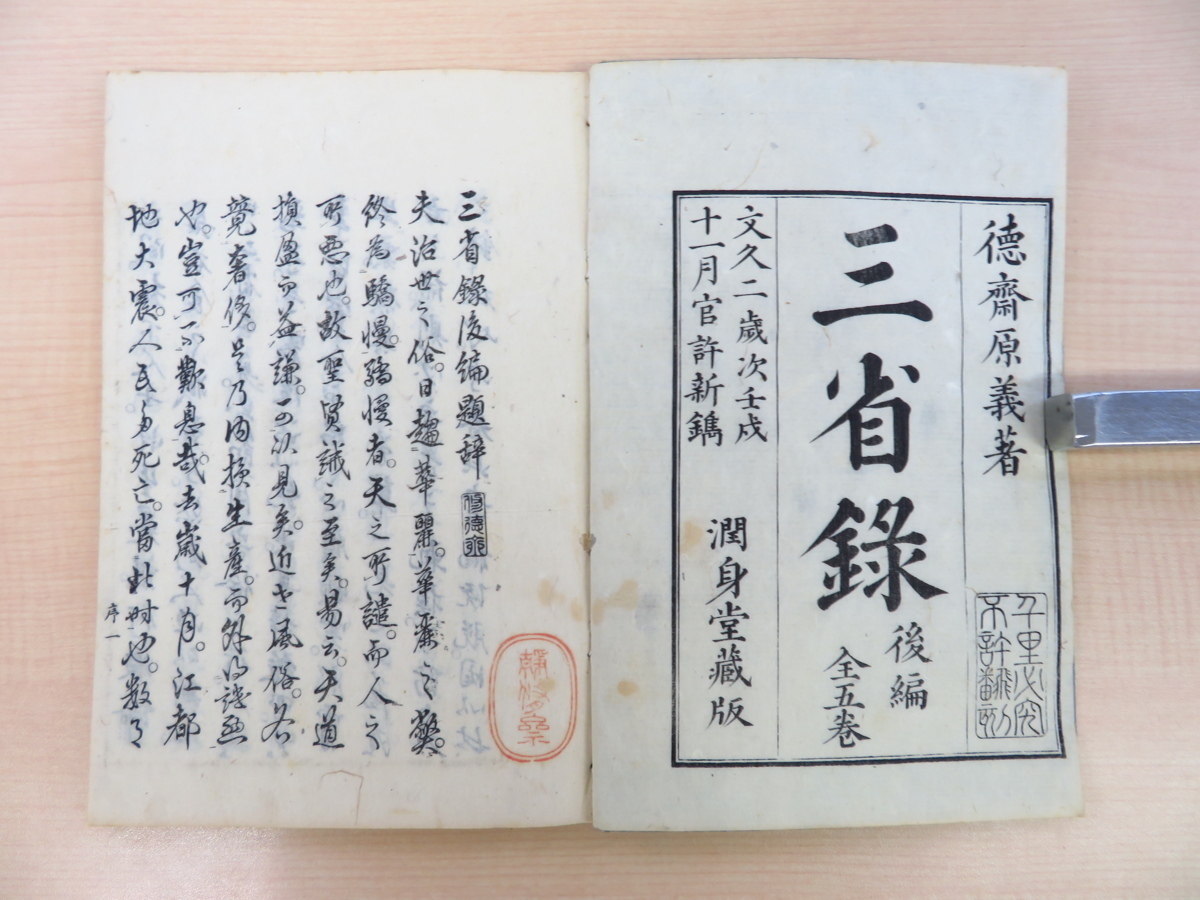 德齋原義著
千里必究
不許翻刻
三省錄後編
全五卷
文久二歲次壬戌
十一月官許新鐫
潤身堂藏版
三省錄後編題辭
夫治世之俗。日趨華麗。華麗之弊。
終為驕慢。驕慢者。天之所譴。而人之
所惡也。故聖賢誡之至矣。易云。天道
損盈而益謙。可以見矣。近世風俗。各
競奢侈。是乃內損生產。而外
也。豈可不歎息哉。去歲十月。江都
地大震。人民多死亡。當此時也。數
序一